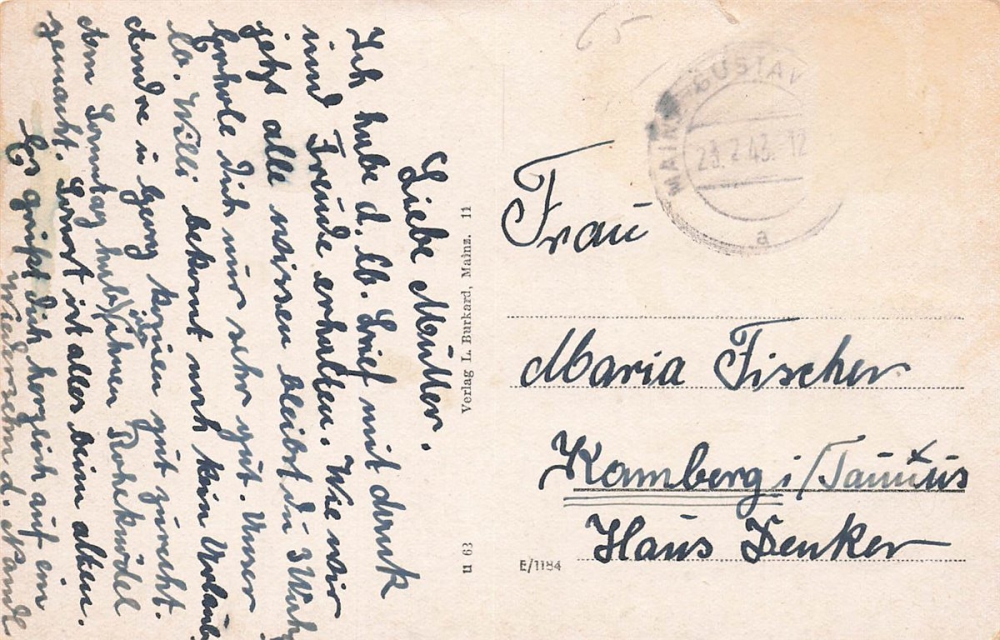 Liebe Mutter.
Ich habe d. lb. Brief mit dank
und Freude erhalten. Wie wir
jetzt alle wissen bleibst du 3 Woch
Erhole dich nur sehr gut. Unser
lb. Willi bekomt noch kein Urlaub.
Andre u Georg kommen gut zurecht.
Am Sonntag hab ich ihnen
gemacht. Sonst ist alles beim alten.
Es grüßt dich herzlich auf ein
Wiedersehn d.
Verlag L. Burkard, Mainz. 11
u 63
E/1184
65
MAINZ-GUSTAV
23.2.43. 12
a
Frau
Maria Fischer
Kamberg i/Taunus
Haus Denker